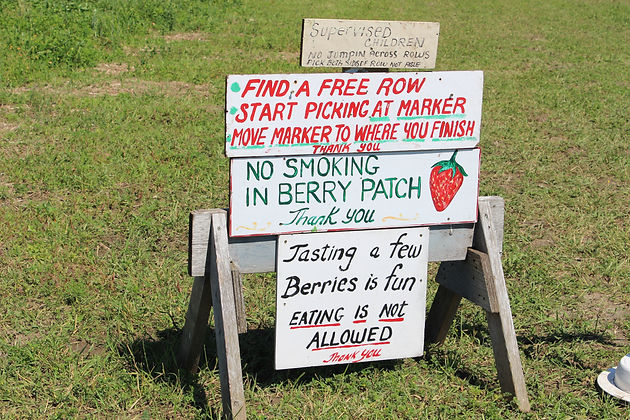 Supervised
CHILDREN
NO JUMPIN ACROSS ROWS
PICK BOTH SIDES OF ROW NOT AISLE
FIND A FREE ROW
START PICKING AT MARKER
MOVE MARKER TO WHERE YOU FINISH
THANK YOU
NO SMOKING
IN BERRY PATCH
Thank You
Tasting a few
Berries is fun
EATING IS NOT
ALLOWED
THANK YOU